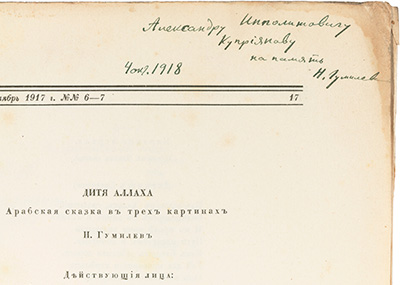 Александру Ипполитовичу
Купріянову
на память
4 окт. 1918
Н. Гумилев
ябрь 1917 г. №№ 6—7
17
ДИТЯ АЛЛАХА
Арабская сказка въ трехъ картинахъ
Н. Гумилевъ
Дѣйствующія лица: